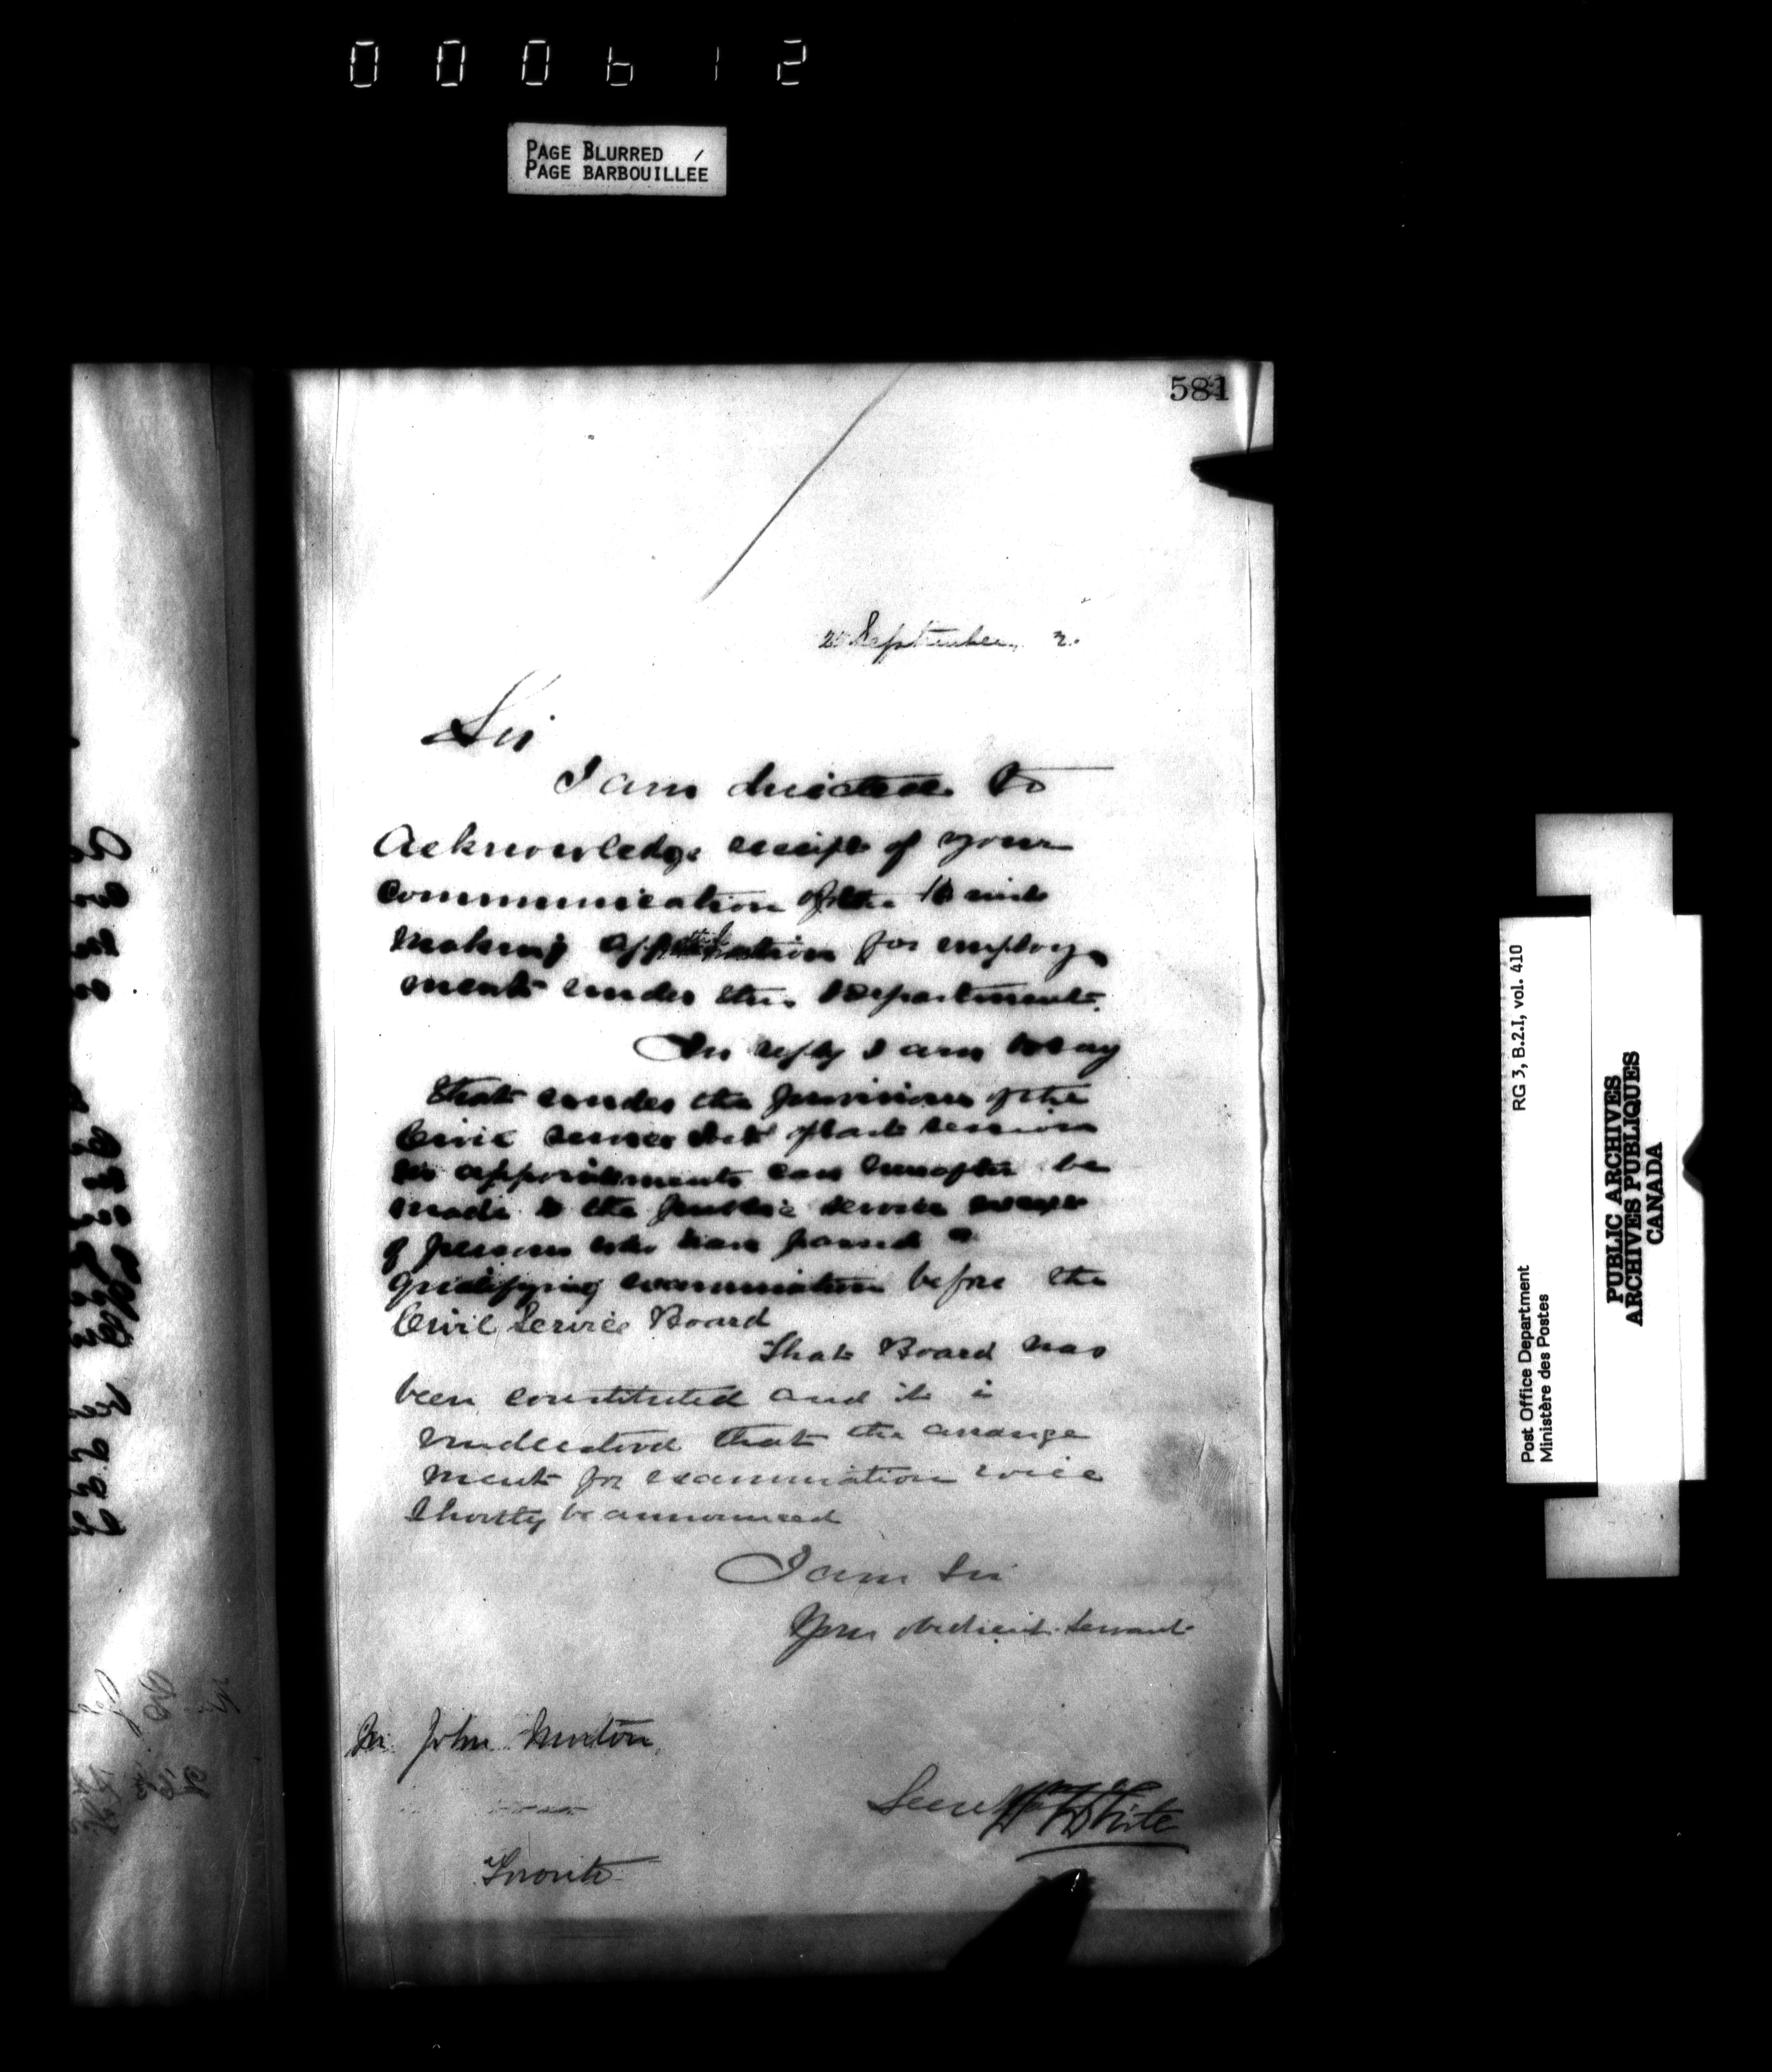 000612
PAGE BLURRED
PAGE BARBOUILLÉE
581
September, 2.
Sir
I am directed to
Acknowledge receipt of your
Communication of the
making application for employ
ment under this Department.
In reply I am to say
that under the provisions of the
Civil Service Act of last session
no appointments can hereafter be
made to the public service except
of persons who have passed a
qualifying examination before the
Civil Service Board
That Board has
been constituted and it is
understood that the arrange
ment for examination will
shortly be announced
I am Sir
Your obedient Servant
Mr John
Wm White
Toronto
RG 3, B.2.I, vol. 410
Post Office Department
Ministère des Postes
PUBLIC ARCHIVES
ARCHIVES PUBLIQUES
CANADA